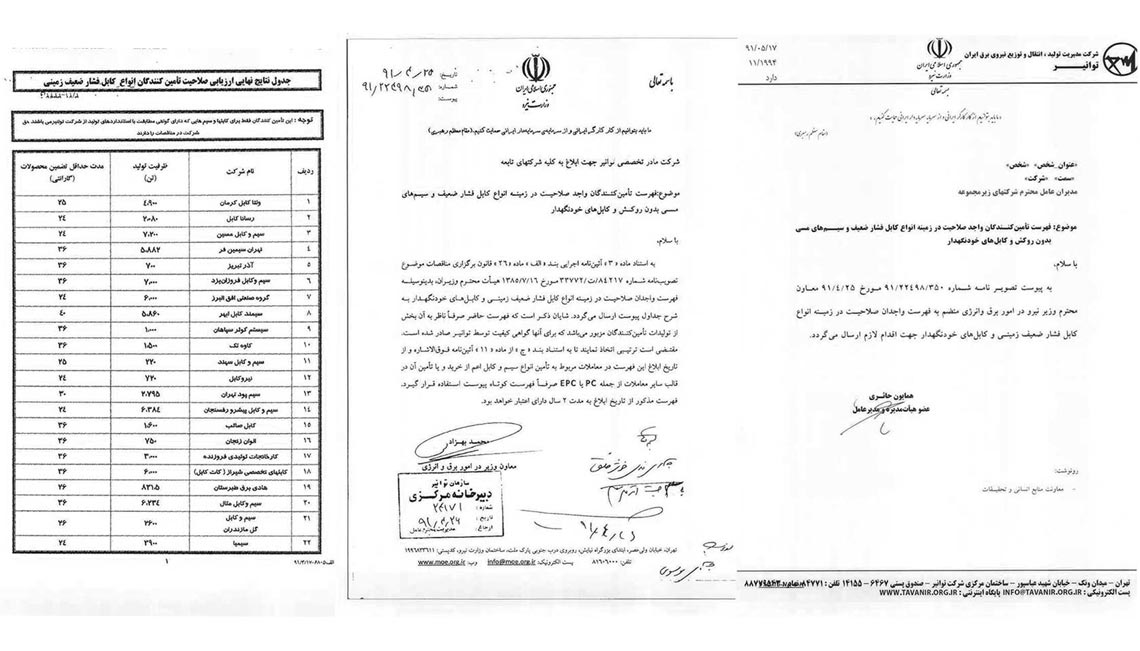 جدول نتایج نهائی ارزیابی صلاحیت تأمین کنندگان انواع کابل فشار ضعیف زمینی
توجه : این تأمین کنندگان فقط برای کابلها و سیم هایی که دارای گواهی مطابقت با استانداردهای تولید از شرکت توانیر می باشند حق
شرکت در مناقصات را دارند
ردیف نام شرکت ظرفیت تولید (تن) مدت حداقل تضمین محصولات (گارانتی)
۱ ولتا کابل کرمان ۴،۹۰۰ ۲۵
۲ رسانا کابل ۲،۰۸۰ ۲۴
۳ سیم و کابل مسین ۷،۲۰۰ ۲۴
۴ تهران سیمین فر ۵،۸۸۲ ۳۶
۵ آذر تبریز ۷۰۰ ۳۶
۶ سیم وکابل فروزان یزد ۷،۰۰۰ ۳۶
۷ گروه صنعتی افق البرز ۶،۰۰۰ ۲۴
۸ سیمند کابل ابهر ۵،۸۶۰ ۴۰
۹ سیستم کولر سپاهان ۱،۰۰۰ ۳۶
۱۰ کاوه تک ۱،۵۰۰ ۳۶
۱۱ سیم و کابل سهند ۲۲۰ ۲۵
۱۲ نیروکابل ۷۲۰ ۲۴
۱۳ سیم پود تهران ۲،۷۹۵ ۳۰
۱۴ سیم و کابل پیشرو رفسنجان ۶،۳۸۴ ۲۴
۱۵ کابل صائب ۱،۶۰۰ ۳۶
۱۶ الوان زنجان ۷۵۰ ۳۶
۱۷ کارخانجات تولیدی فروزنده ۳،۰۰۰ ۳۶
۱۸ کابلهای تخصصی شیراز ( کات کابل) ۶،۰۰۰ ۳۶
۱۹ هادی برق طبرستان ۸۲۱،۵ ۲۶
۲۰ سیم وکابل متال ۶،۲۳۴ ۳۶
۲۱ سیم و کابل گل مازندران ۲۶۰۰ ۲۶
۲۲ سیمیا ۳۹۰۰ ۲۴
۱
باسمه تعالی
جمهوری اسلامی ایران
وزارت نیرو
تاریخ: ۹۱/۴/۲۵
شماره: ۹۱/۲۲۴۹۸/۳۵۰
پیوست:
ما باید بتوانیم از کار کارگر ایرانی و از سرمایه‌ی سرمایه‌دار ایرانی حمایت کنیم.(مقام معظم رهبری)
شرکت مادر تخصصی توانیر جهت ابلاغ به کلیه شرکتهای تابعه
موضوع:فهرست تأمین‌کنندگان واجد صلاحیت در زمینه انواع کابل فشار ضعیف و سیم‌های
مسی بدون روکش و کابل‌های خودنگهدار
با سلام،
به استناد ماده «۳» آئین‌نامه اجرایی بند «الف» ماده «۲۶» قانون برگزاری مناقصات موضوع
تصویب‌نامه شماره ۸۴۲۱۷/ت۳۳۷۷۲ه مورخ ۱۳۸۵/۷/۱۶ هیأت محترم وزیران، بدینوسیله
فهرست واجدان صلاحیت در زمینه انواع کابل فشار ضعیف زمینی و کابل‌های خودنگهدار به
شرح جداول پیوست ارسال می‌گردد. شایان ذکر است که فهرست حاضر صرفاً ناظر به آن بخش
از تولیدات تأمین‌کنندگان مزبور می‌باشد که برای آنها گواهی کیفیت توسط توانیر صادر شده است.
مقتضی است ترتیبی اتخاذ نمایند تا به استناد بند «ج » از ماده «۱۱» آئین‌نامه فوق‌الاشاره و از
تاریخ ابلاغ این فهرست در معاملات مربوط به تأمین انواع سیم و کابل اعم از خرید و یا تأمین آن در
قالب سایر معاملات از جمله PC یا EPC صرفاً فهرست کوتاه پیوست استفاده قرار گیرد.
فهرست مذکور از تاریخ ابلاغ به مدت ۲ سال دارای اعتبار خواهد بود.
محمد بهزاد
معاون وزیر در امور برق و انرژی
سازمان توانیر
دبیرخانه مرکزی
شماره:
تاریخ: ۹۱/۴/۲۶
ارجاع: مدیریت محترم عامل
تهران، خیابان ولی‌عصر، ابتدای بزرگراه نیایش، روبروی درب جنوبی پارک ملت، ساختمان وزارت نیرو، کدپستی: ۱۹۹۶۸۳۳۶۱۱
تلفن: ۸۱۶۰۶۰۰۰ پست الکترونیک: info@moe.org.ir وب: www.moe.org.ir
شرکت مدیریت تولید ، انتقال و توزیع نیروی برق ایران
توانیر
جمهوری اسلامی ایران
وزارت نیرو
بسمه تعالی
۹۱/۰۵/۱۷
۱۱/۱۹۹۴
دارد
«عنوان_شخص» «شخص»
«سمت» «شرکت»
مدیران عامل محترم شرکتهای زیرمجموعه
موضوع: فهرست تأمین‌کنندگان واجد صلاحیت در زمینه انواع کابل فشار ضعیف و سیم‌های مسی
بدون روکش و کابل‌های خودنگهدار
با سلام،
به پیوست تصویر نامه شماره ۹۱/۲۲۴۹۸/۳۵۰ مورخ ۹۱/۴/۲۵ معاون
محترم وزیر نیرو در امور برق وانرژی منضم به فهرست واجدان صلاحیت در زمینه انواع
کابل فشار ضعیف زمینی و کابل‌های خودنگهدار جهت اقدام لازم ارسال می‌گردد.
همایون حائری
عضو هیأت‌مدیره و مدیرعامل
رونوشت:
- معاونت منابع انسانی و تحقیقات
تهران – میدان ونک – خیابان شهید عباسپور – ساختمان مرکزی شرکت توانیر – صندوق پستی ۶۴۶۷ – ۱۴۱۵۵ تلفن :
پست الکترونیکی : INFO@TAVANIR.ORG.IR پایگاه اینترنتی : WWW.TAVANIR.ORG.IR